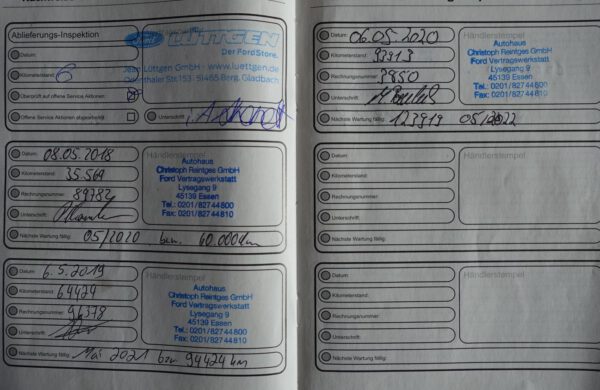 Ablieferungs-Inspektion
Datum:
Kilometerstand: 6
Überprüft auf offene Service Aktionen
Offene Service Aktionen abgearbeitet
Ford LÜTTGEN
Der FordStore.
Jean Lüttgen GmbH · www.luettgen.de
Odenthaler Str. 153 · 51465 Berg. Gladbach
Unterschrift:
Datum: 08.05.2018
Kilometerstand: 35.569
Rechnungsnummer: 89782
Unterschrift:
Händlerstempel
Autohaus
Christoph Reintges GmbH
Ford Vertragswerkstatt
Lysegang 9
45139 Essen
Tel.: 0201/827 44 800
Fax: 0201/827 44 810
Nächste Wartung fällig: 05/2020 bzw. 60.000km
Datum: 6.5.2019
Kilometerstand: 64424
Rechnungsnummer: 96378
Unterschrift:
Händlerstempel
Autohaus
Christoph Reintges GmbH
Ford Vertragswerkstatt
Lysegang 9
45139 Essen
Tel.: 0201/827 44 800
Fax: 0201/827 44 810
Nächste Wartung fällig: Mai 2021 bzw 94424 km
Datum: 06.05.2020
Kilometerstand: 93913
Rechnungsnummer:
Unterschrift:
Händlerstempel
Autohaus
Christoph Reintges GmbH
Ford Vertragswerkstatt
Lysegang 9
45139 Essen
Tel.: 0201/827 44 800
Fax: 0201/827 44 810
Nächste Wartung fällig: 123919 05/2022
Datum:
Kilometerstand:
Rechnungsnummer:
Unterschrift:
Händlerstempel
Nächste Wartung fällig:
Datum:
Kilometerstand:
Rechnungsnummer:
Unterschrift:
Händlerstempel
Nächste Wartung fällig: